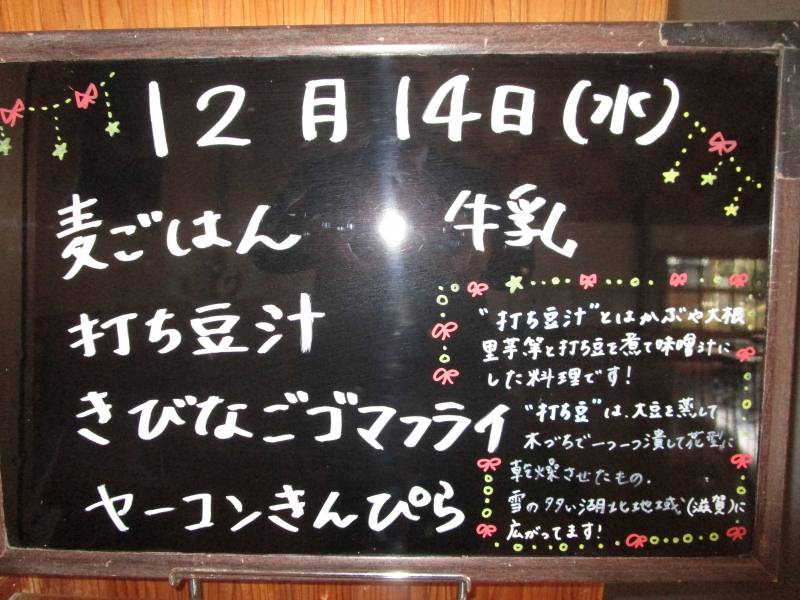 12月14日(水)
麦ごはん 牛乳
打ち豆汁
きびなごゴマフライ
ヤーコンきんぴら
"打ち豆汁"とはかぶや大根
里芋等と打ち豆を煮て味噌汁に
した料理です!
"打ち豆"は、大豆を蒸して
木づちで一つ一つ潰して花型に
乾燥させたもの.
雪の多い湖北地域(滋賀)に
広がってます!